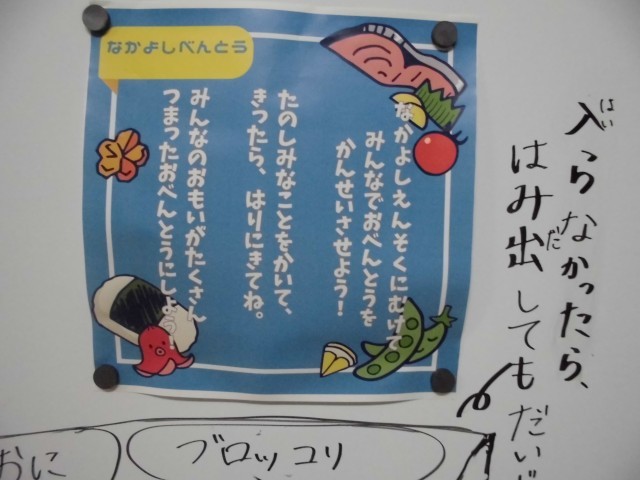 なかよしべんとう
なかよしえんそくにむけて
みんなでおべんとうを
かんせいさせよう！
たのしみなことをかいて、
きったら、はりにきてね。
みんなのおもいがたくさん
つまったおべんとうにしよう！
入らなかったら、
はい
はみ出してもだいじ
だ
おに
ブロッコリ